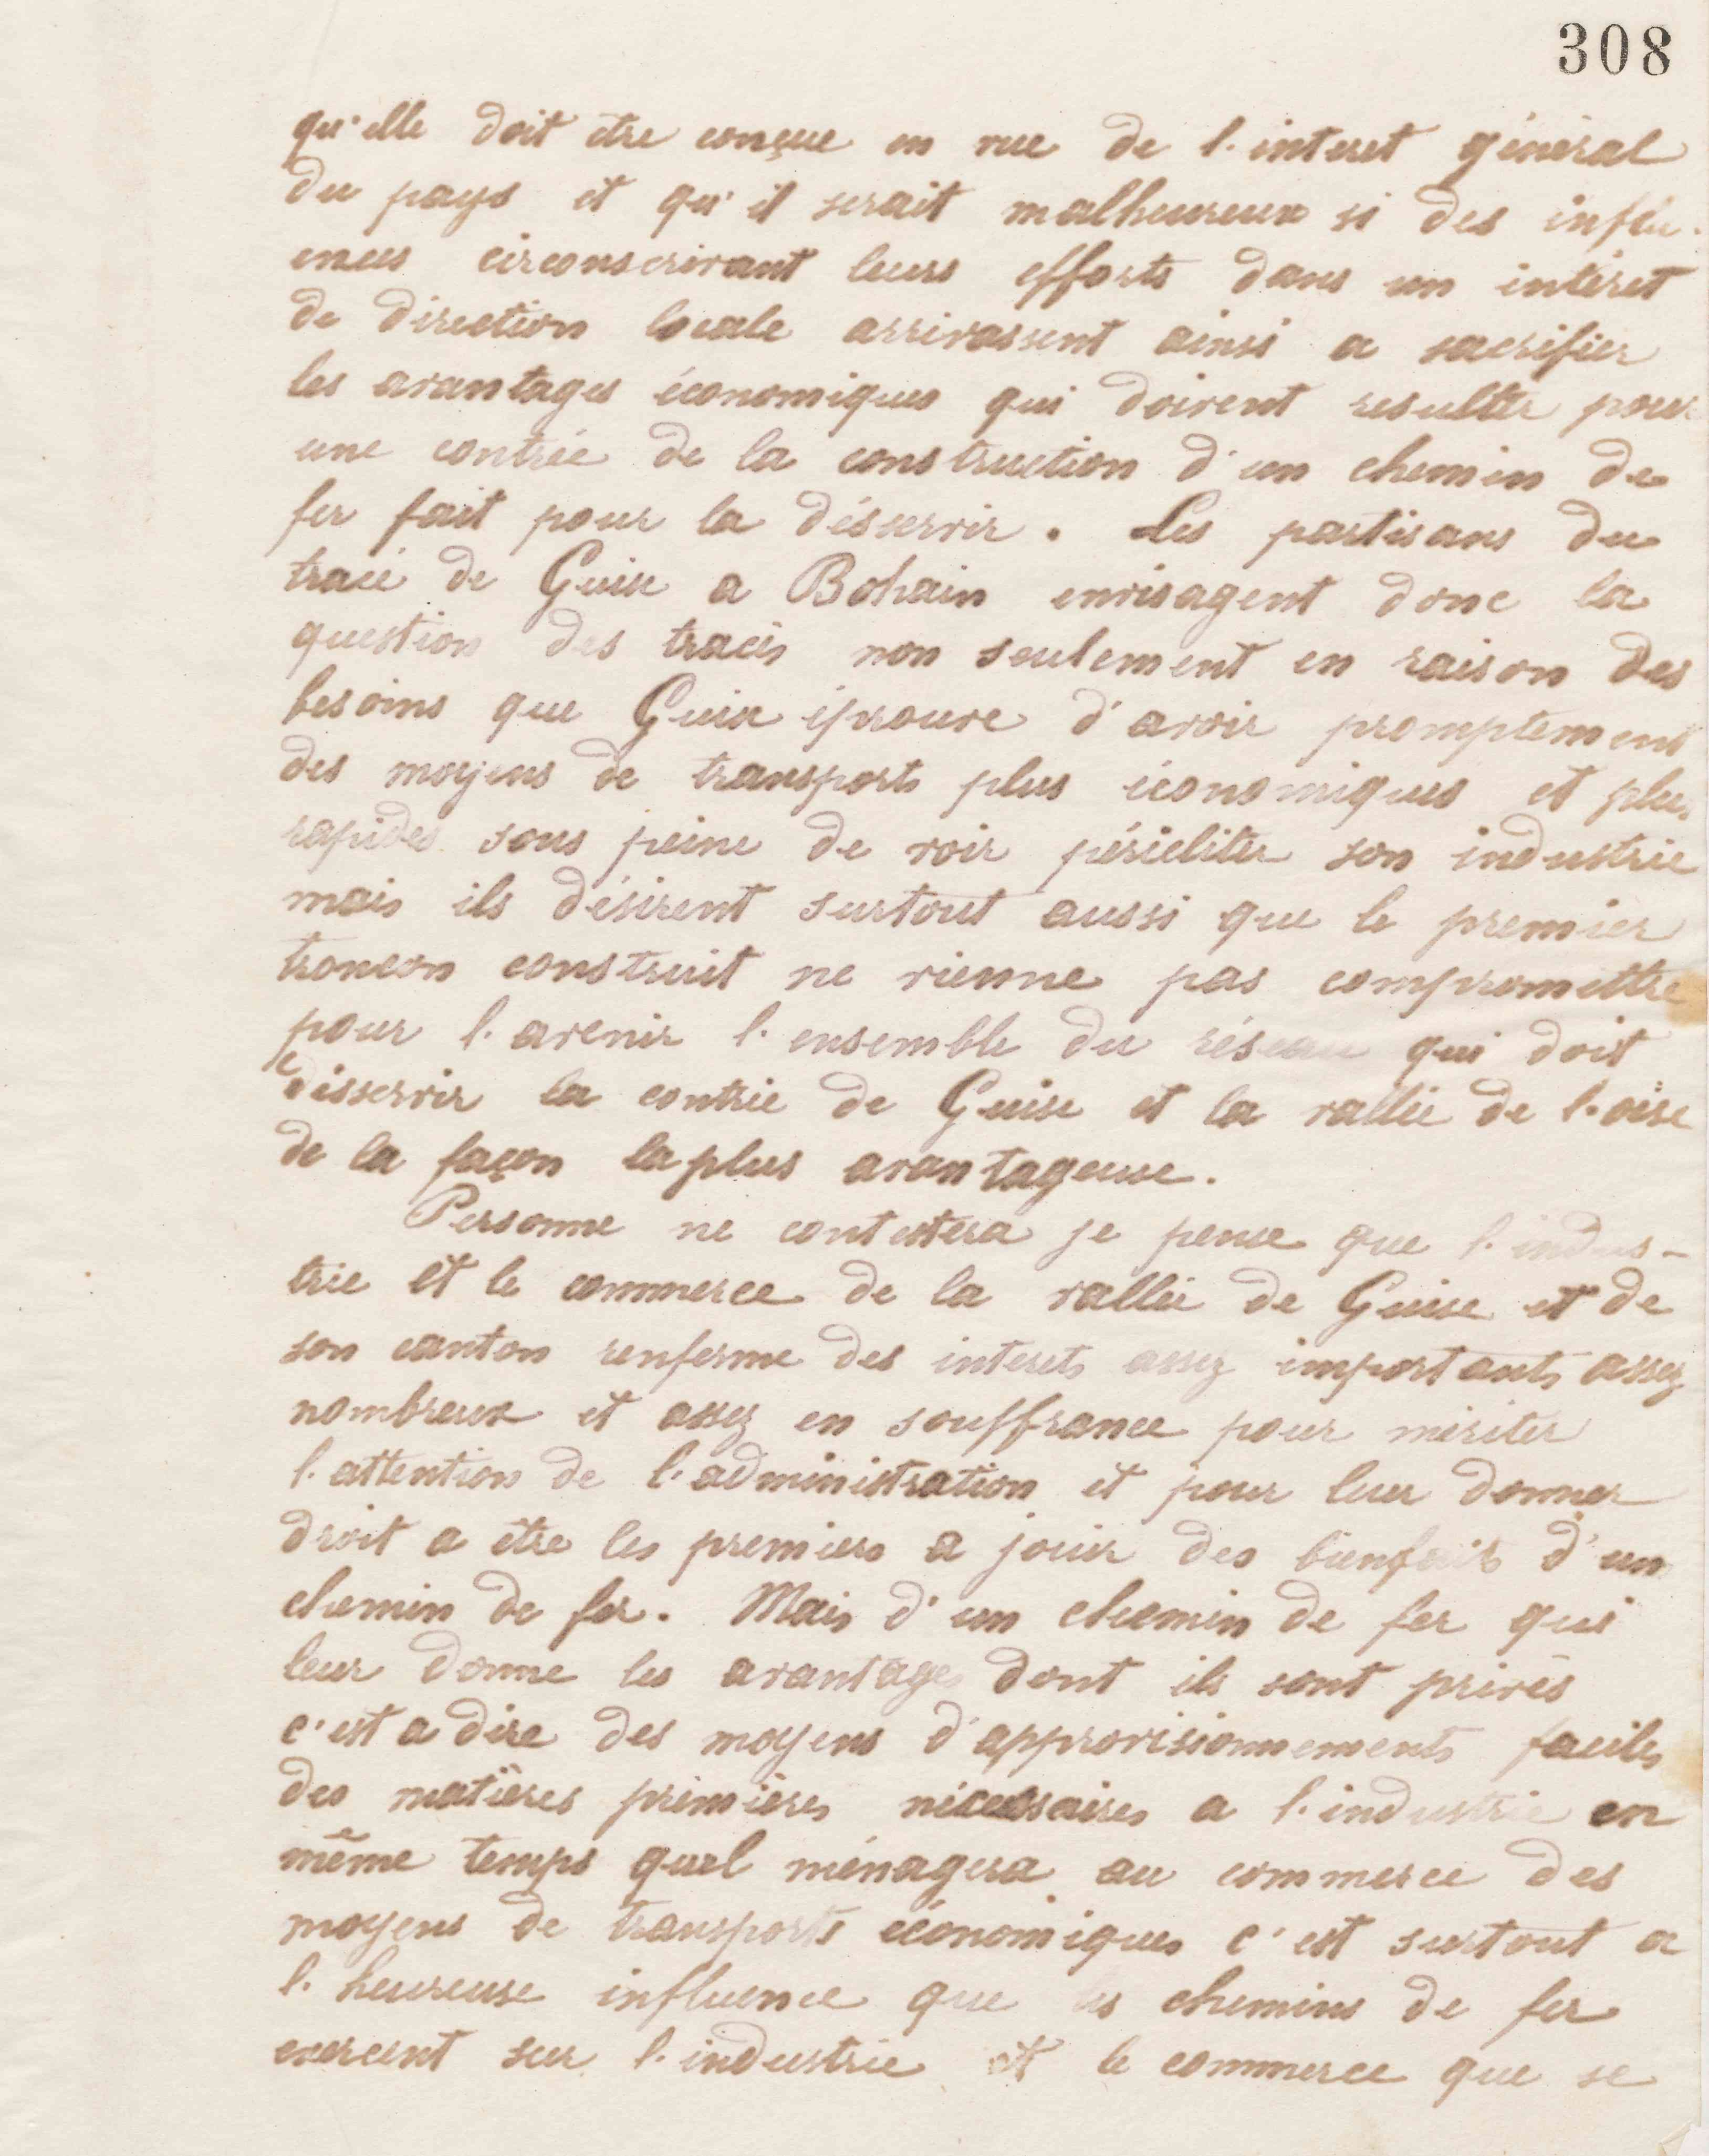 308
qu'elle doit être conçue en vue de l'interet général
du pays et qu'il serait malheureux si des influ-
ences circonscrivant leurs efforts dans un intéret
de direction locale arrivassent ainsi a sacrifier
les avantages économiques qui doivent resulter pour
une contrée de la construction d'un chemin de
fer fait pour la désservir. Les partisans du
tracé de Guise a Bohain envisagent donc la
question des tracés non seulement en raison des
besoins que Guise éprouve d'avoir promptement
des moyens de transports plus économiques et plus
rapides sous peine de voir péricliter son industrie
mais ils désirent surtout aussi que le premier
troncon construit ne vienne pas compromettre
pour l'avenir l'ensemble du réseau qui doit
désservir la contrée de Guise et la vallée de l'oise
de la façon la plus avantageuse.
Personne ne contestera je pense que l'indus-
trie et le commerce de la vallée de Guise et de
son canton renferme des interets assez importants assez
nombreux et assez en souffrance pour mériter
l'attention de l'administration et pour leur donner
droit a être les premiers a jouir des bienfaits d'un
chemin de fer. Mais d'un chemin de fer qui
leur donne les avantages dont ils sont privés
c'est a dire des moyens d'approvisionnements faciles
des matières premières nécessaires a l'industrie en
même temps quel ménagera au commerce des
moyens de transports économiques c'est surtout a
l'heureuse influence que les chemins de fer
exercent sur l'industrie et le commerce que se